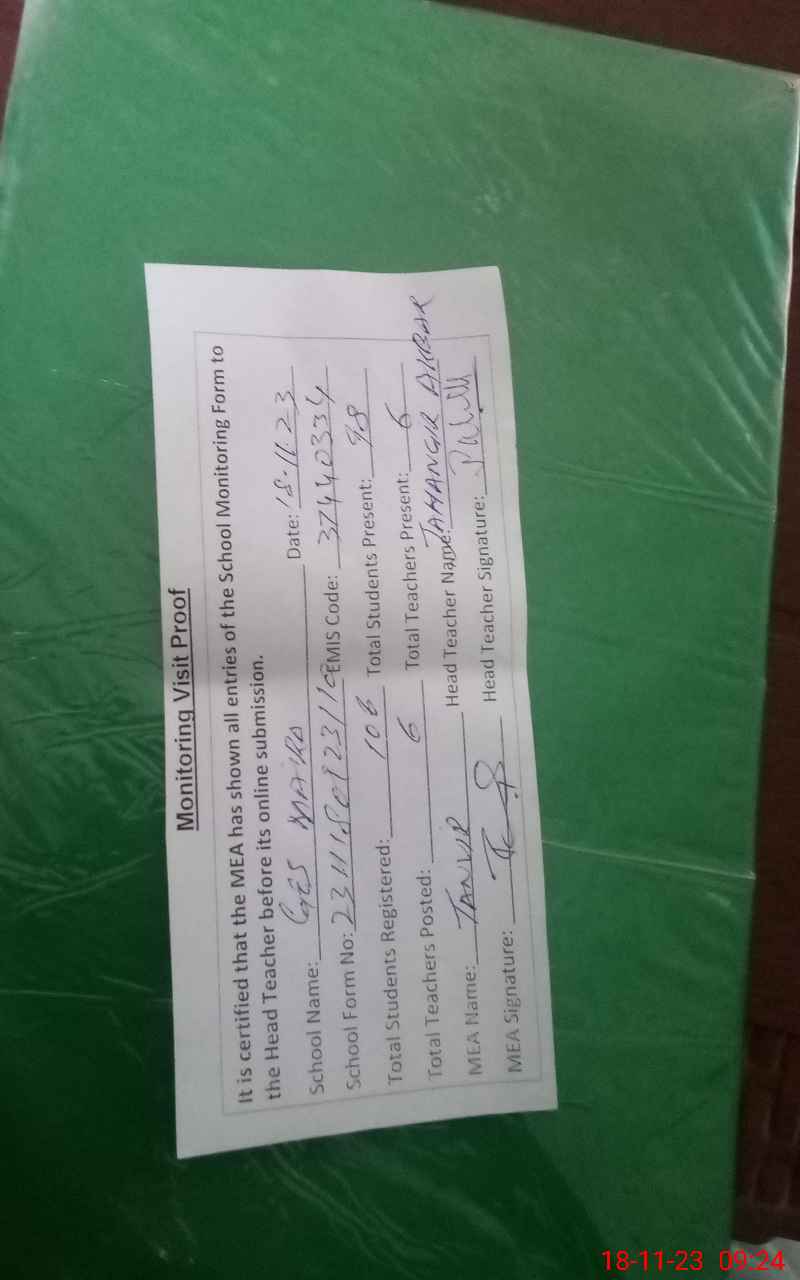 Monitoring Visit Proof
It is certified that the MEA has shown all entries of the School Monitoring Form to
the Head Teacher before its online submission.
School Name: GES MAIRA Date: 18-11-23
School Form No: EMIS Code: 37440334
Total Students Registered: 106 Total Students Present: 98
Total Teachers Posted: 6 Total Teachers Present: 6
MEA Name: TANVIR Head Teacher Name: JAHANGIR AKBAR
MEA Signature: Head Teacher Signature:
18-11-23 09:24